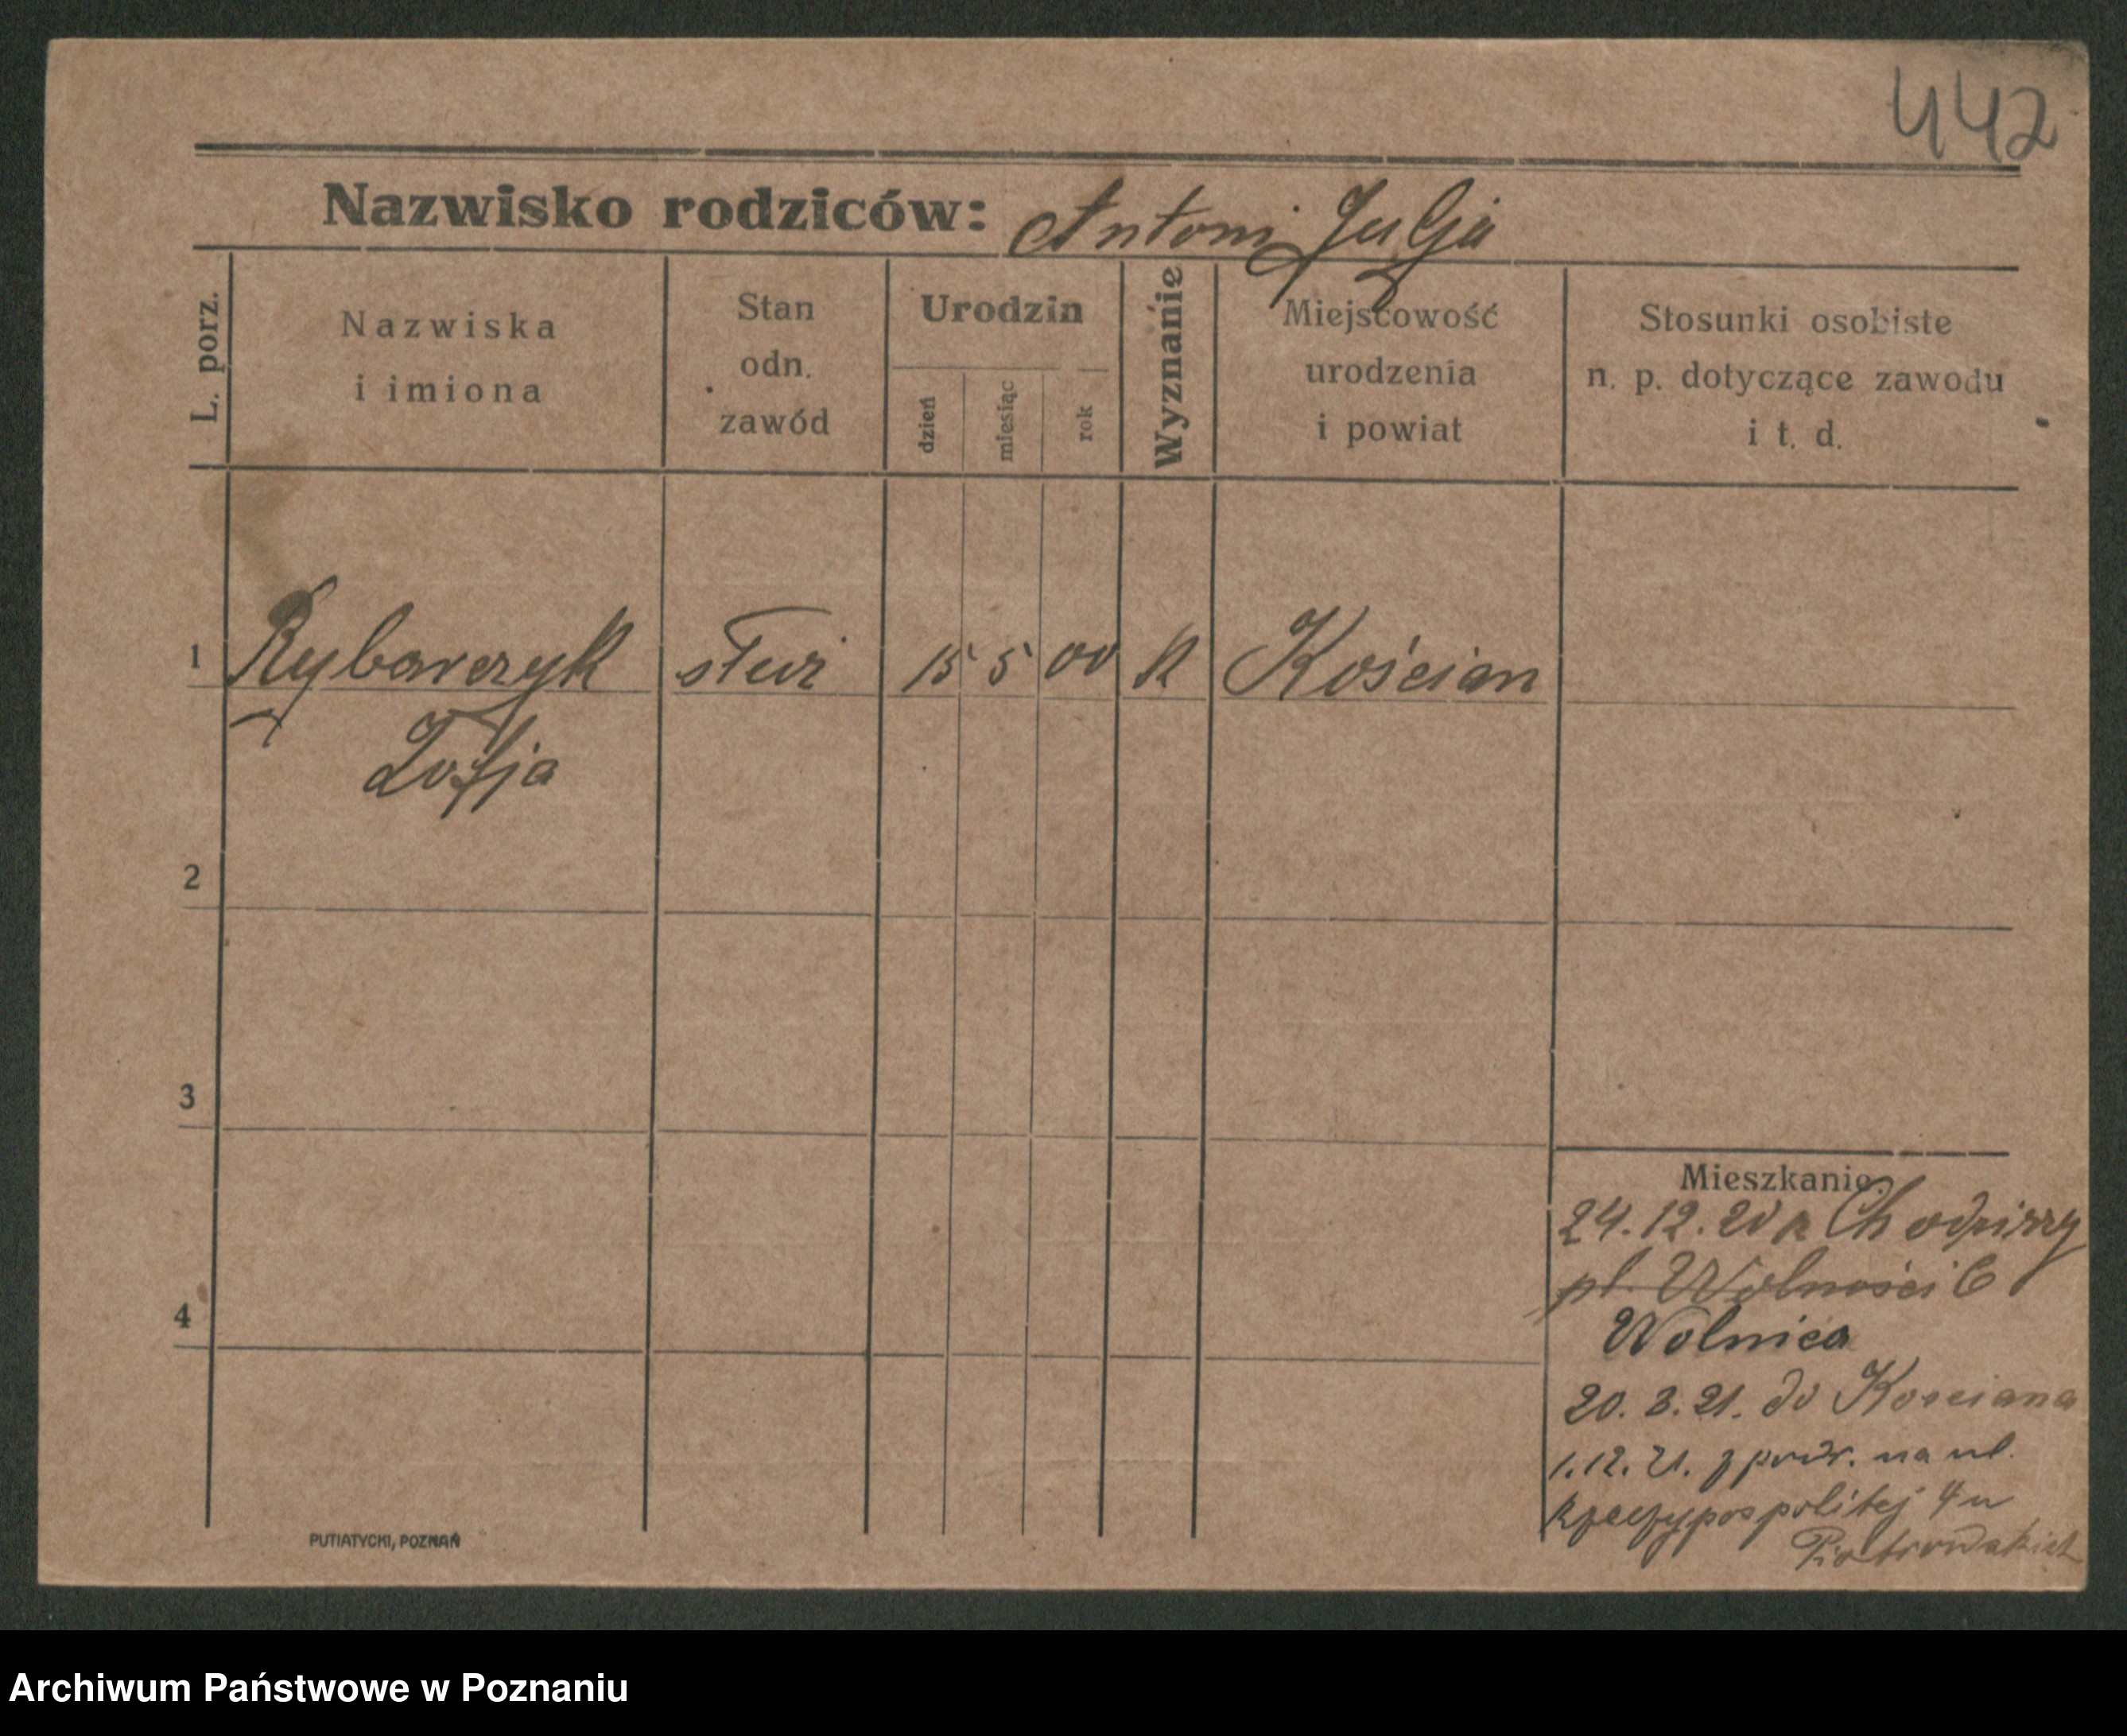 442
Nazwisko rodziców: Antoni Julja
L. porz.
Nazwiska
i imiona
Stan
odn.
zawód
Urodzin
dzień
miesiąc
rok
Wyznanie
Miejscowość
urodzenia
i powiat
Stosunki osobiste
n. p. dotyczące zawodu
i t. d.
1 Rybarczyk służ 15 5 00 k Kościan
Zofja
2
3
4
Mieszkanie.
24.12.20 z
pl. Wolności 6
Wolnica
20. 3. 21. do Kościana
1.12.21. z powr. na ul.
Rzeczypospolitej 4 u
Piotrowskich
PUTIATYCKI, POZNAŃ
Archiwum Państwowe w Poznaniu